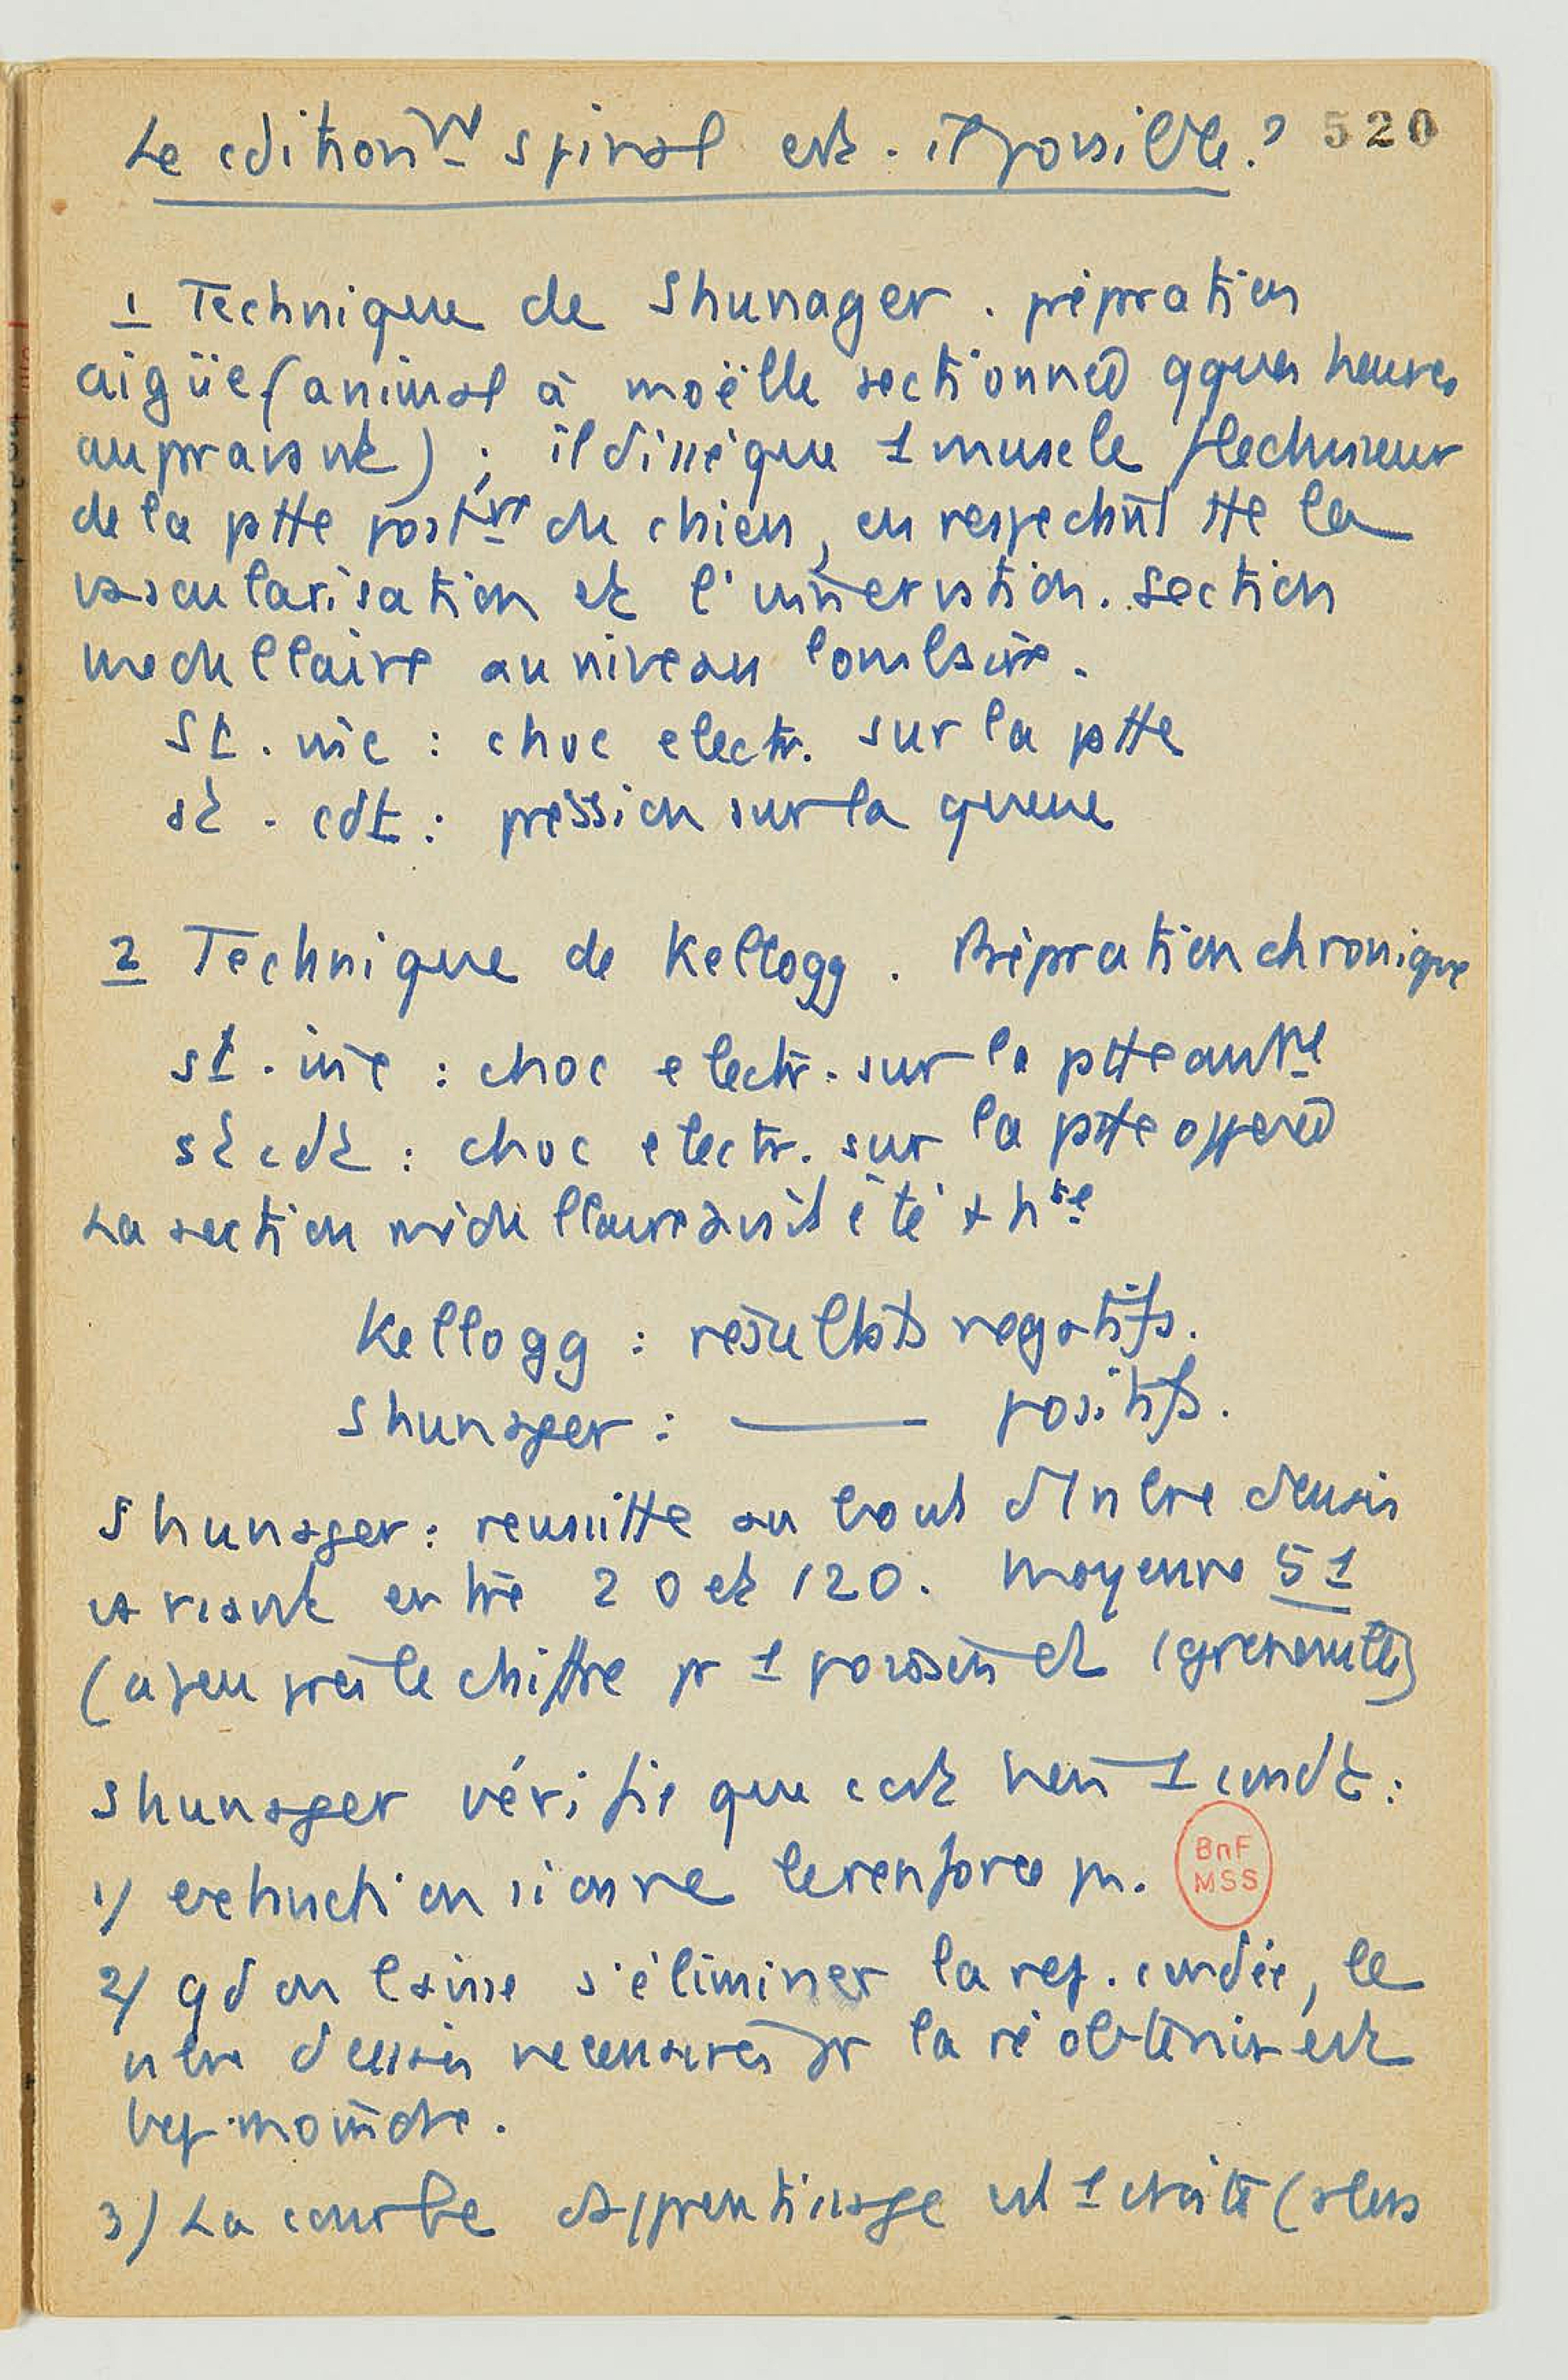 Le cditionnt spinal est-il possible ? 520
1 Technique de Shunager. préparation
aigüe (animal à moëlle sectionnée qques heures
auparavant) ; il dissèque 1 muscle fléchisseur
de la ptte postre du chien, en respectant tte la
vascularisation et l'innervation. Section
medullaire au niveau lombaire.
St. inc : choc electr. sur la ptte
st. cdt : pression sur la queue
2 Technique de Kellogg. Préparation chronique
st. inc : choc electr. sur la ptte
st cdt : choc electr. sur la ptte opposée
La section médullaire avait été + hte
Kellogg : résultats negatifs.
Shunager : —— positifs.
Shunager : reussitte au bout d'1 nbre d'essais
variant entre 20 et 120. Moyenne 51
(a peu près le chiffre pr 1 poisson et 1 grenouille)
Shunager vérifie que cest bien 1 condt :
1) extinction si on ne le renforce pas.
BnF
MSS
2) qd on laisse s'éliminer la rep. condée, le
nbre d'essais necessaires pr la réobtenir est
bcp moindre.
3) La courbe d'apprentissage est 1 droite (alors